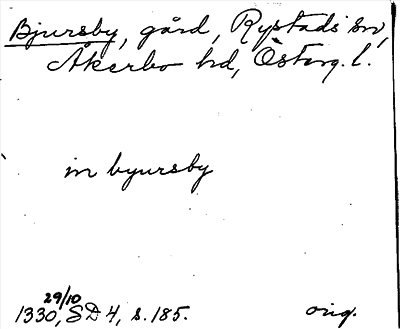 Bjursby, gård, Rystads sn,
Åkerbo hd, Österg. l.
in byursby
29/10
1330, SD 4, s. 185. orig.